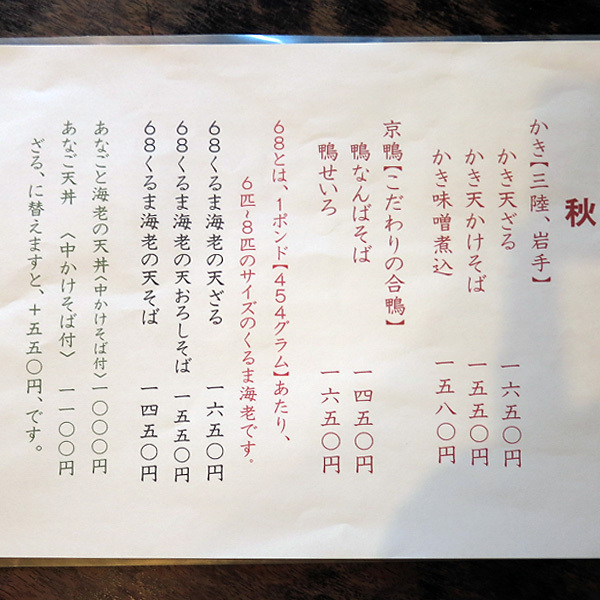 秋
かき【三陸、岩手】
かき天ざる 一六五〇円
かき天かけそば 一五五〇円
かき味噌煮込 一五八〇円
京鴨【こだわりの合鴨】
鴨なんばそば 一四五〇円
鴨せいろ 一六五〇円
68とは、1ポンド【454グラム】あたり、
6匹~8匹のサイズのくるま海老です。
68くるま海老の天ざる 一六五〇円
68くるま海老の天おろしそば 一五五〇円
68くるま海老の天そば 一四五〇円
あなごと海老の天丼〈中かけそば付〉一〇〇〇円
あなご天丼 〈中かけそば付〉 一一〇〇円
ざる、に替えますと、+五五〇円、です。